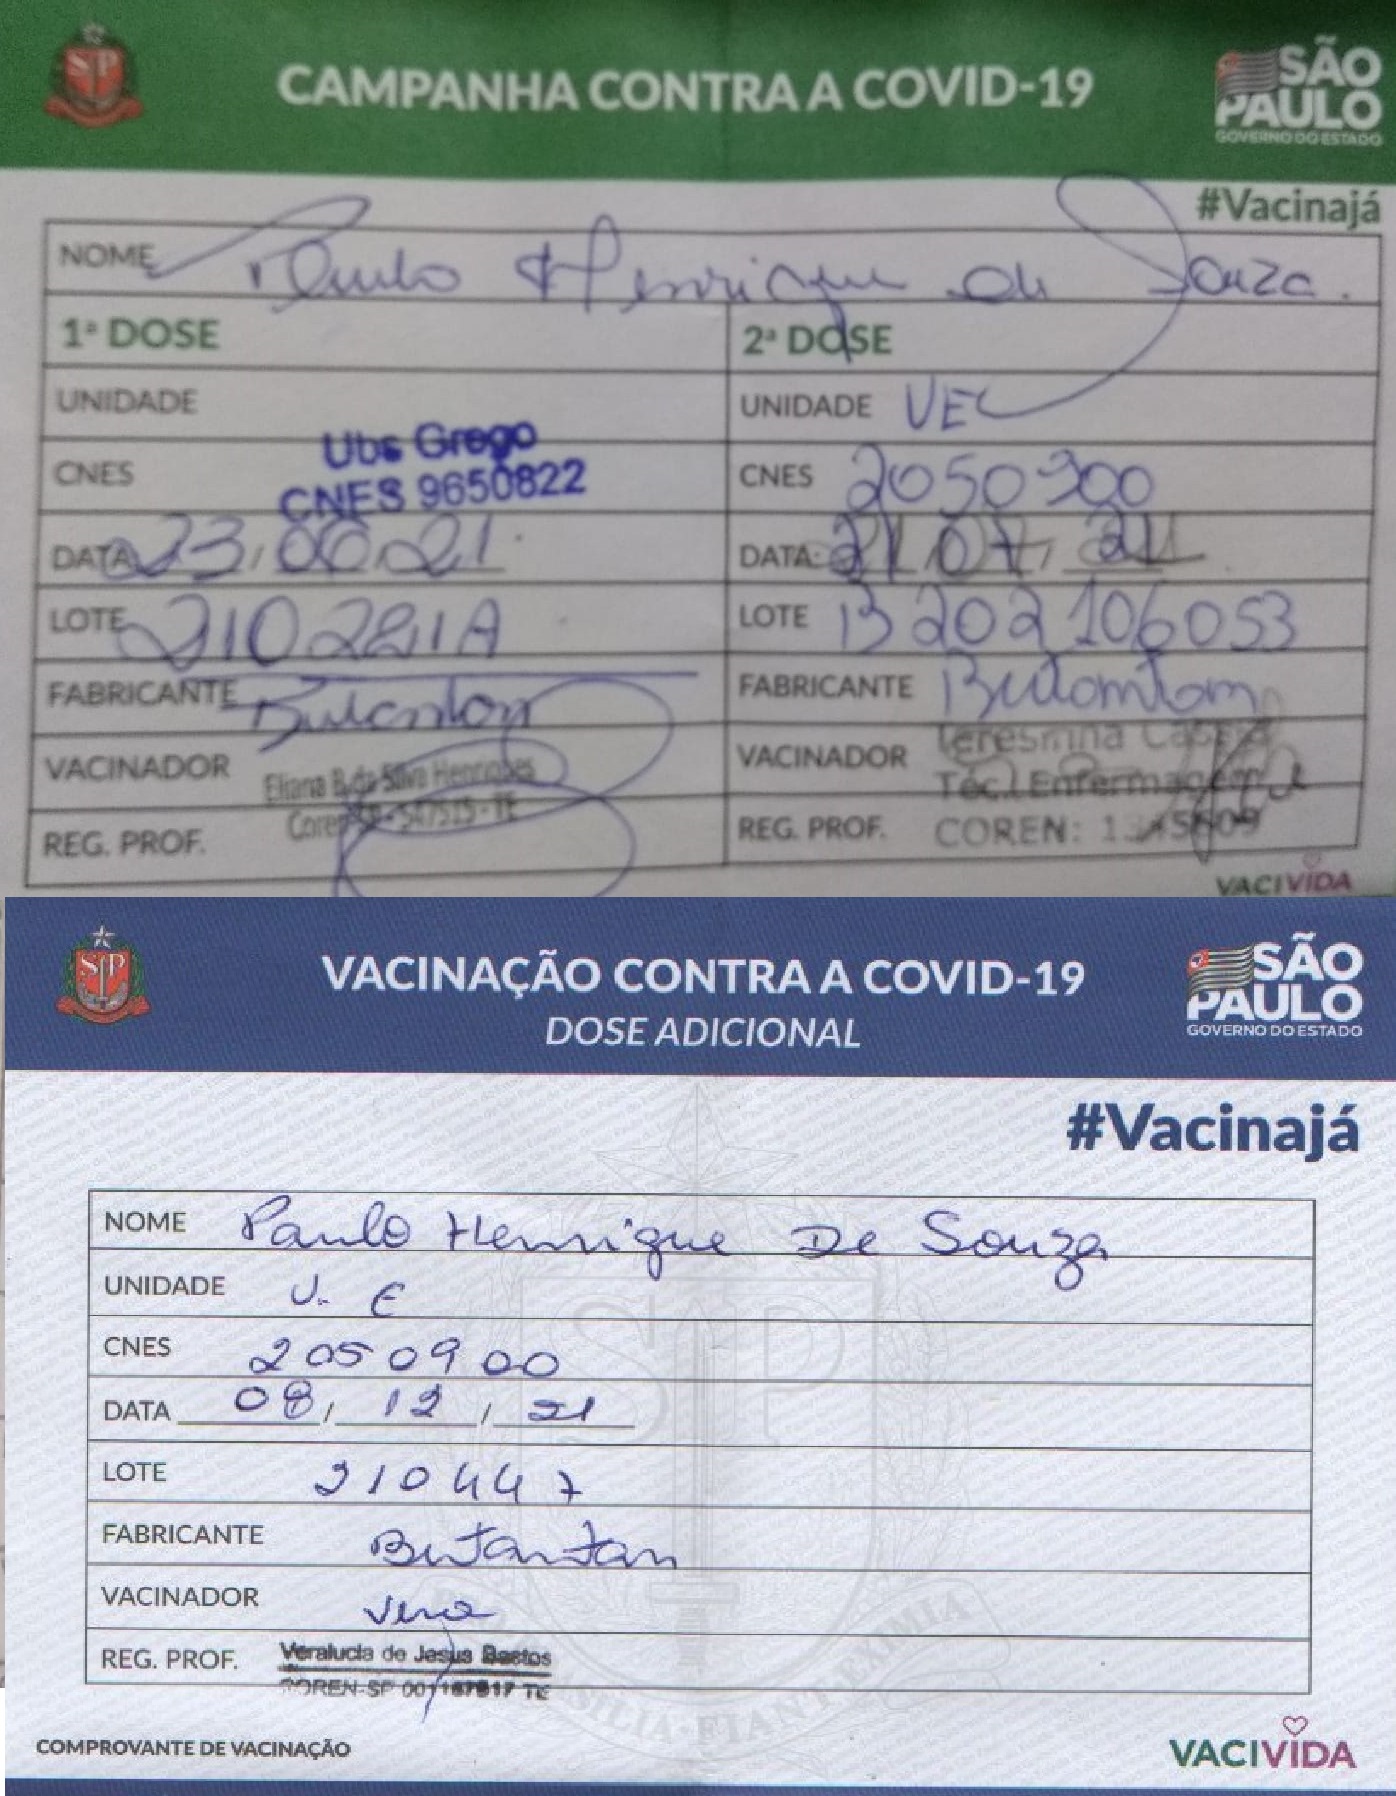 SP
CAMPANHA CONTRA A COVID-19
SÃO PAULO
GOVERNO DO ESTADO
#Vacinajá
NOME Paulo Henrique de Souza.
1ª DOSE
2ª DOSE
UNIDADE
UNIDADE
CNES Ubs Grego
CNES 9650822
CNES 2050900
DATA 23/06/21
DATA 21/07/21
LOTE
LOTE B202106053
FABRICANTE Butantan
FABRICANTE Butantan
VACINADOR Eliana B. da Silva Henriques
VACINADOR Teresinha
Téc. Enfermagem
REG. PROF.
REG. PROF. COREN:
VACIVIDA
SP
VACINAÇÃO CONTRA A COVID-19
DOSE ADICIONAL
SÃO PAULO
GOVERNO DO ESTADO
#Vacinajá
NOME Paulo Henrique De Souza
UNIDADE U. E
CNES 2050900
DATA 08/12/21
LOTE 210447
FABRICANTE Butantan
VACINADOR Vera
REG. PROF. Veralucia de Jesus Bastos
COREN-SP
COMPROVANTE DE VACINAÇÃO
VACIVIDA